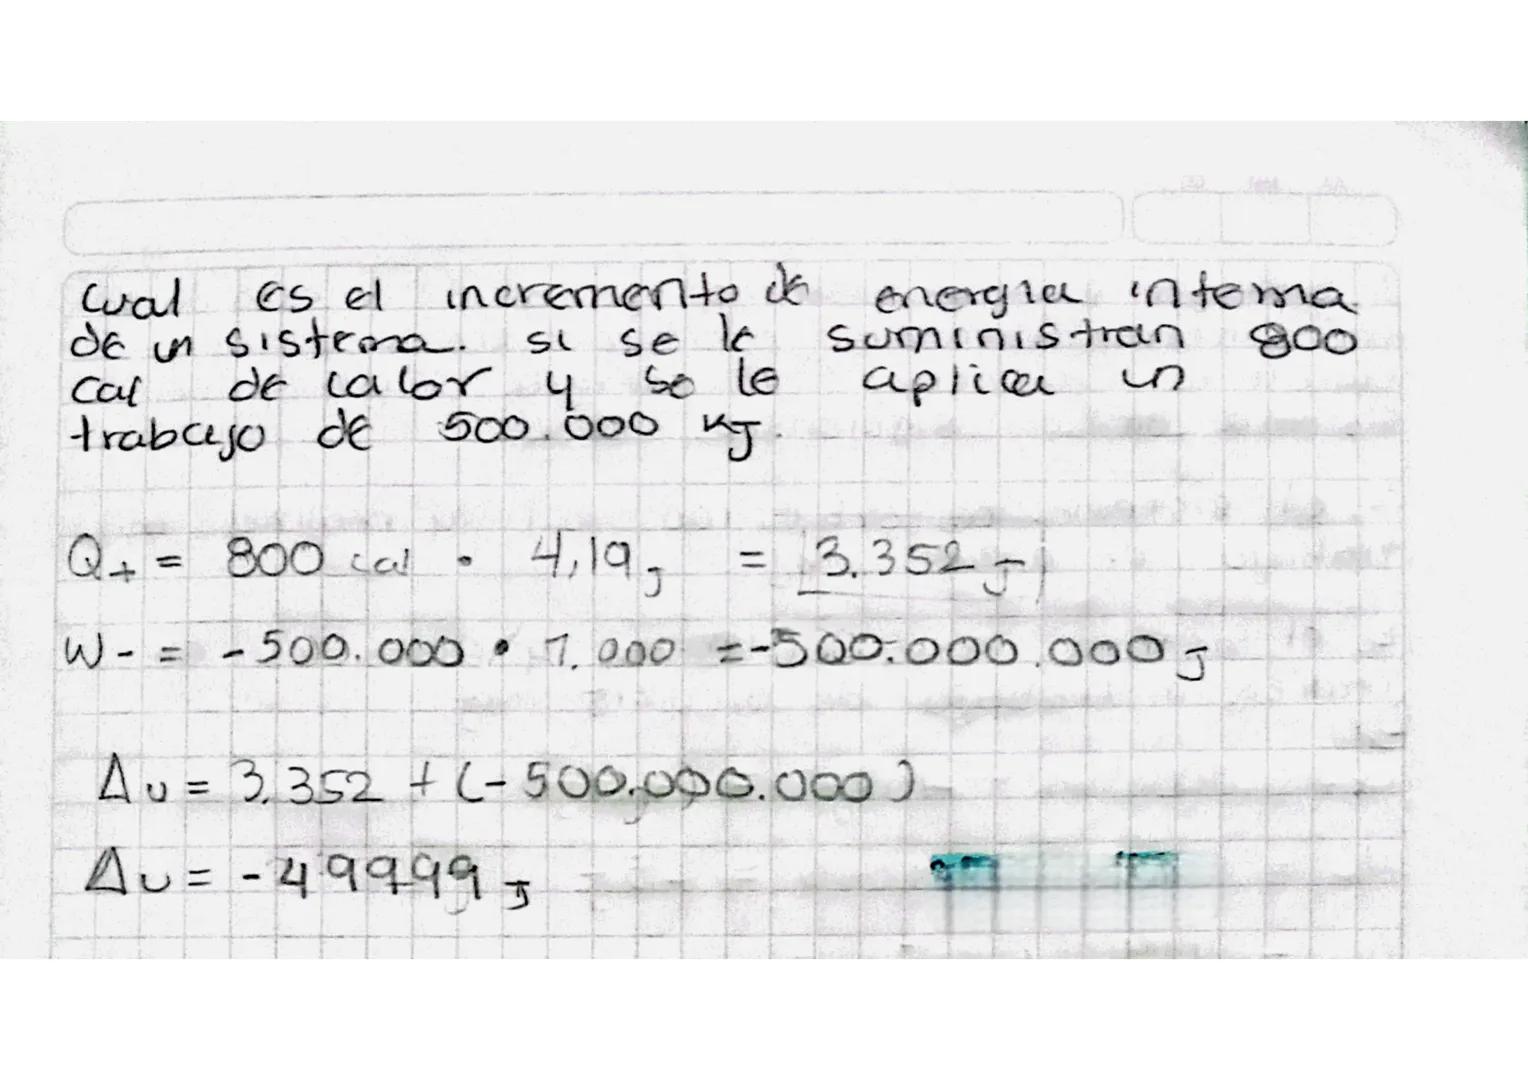 Cual es el incremento de energia interna
de un sistema. si se le suministran 800
cal de calor y se le aplica un
trabajo de 500.000 KJ.
Q+ = 800 cal • 4,19 J = 3.352 J
W- = -500.000 • 1.000 =-500.000.000 J
Δu = 3.352 + (-500.000.000)
Δu = -499999 J